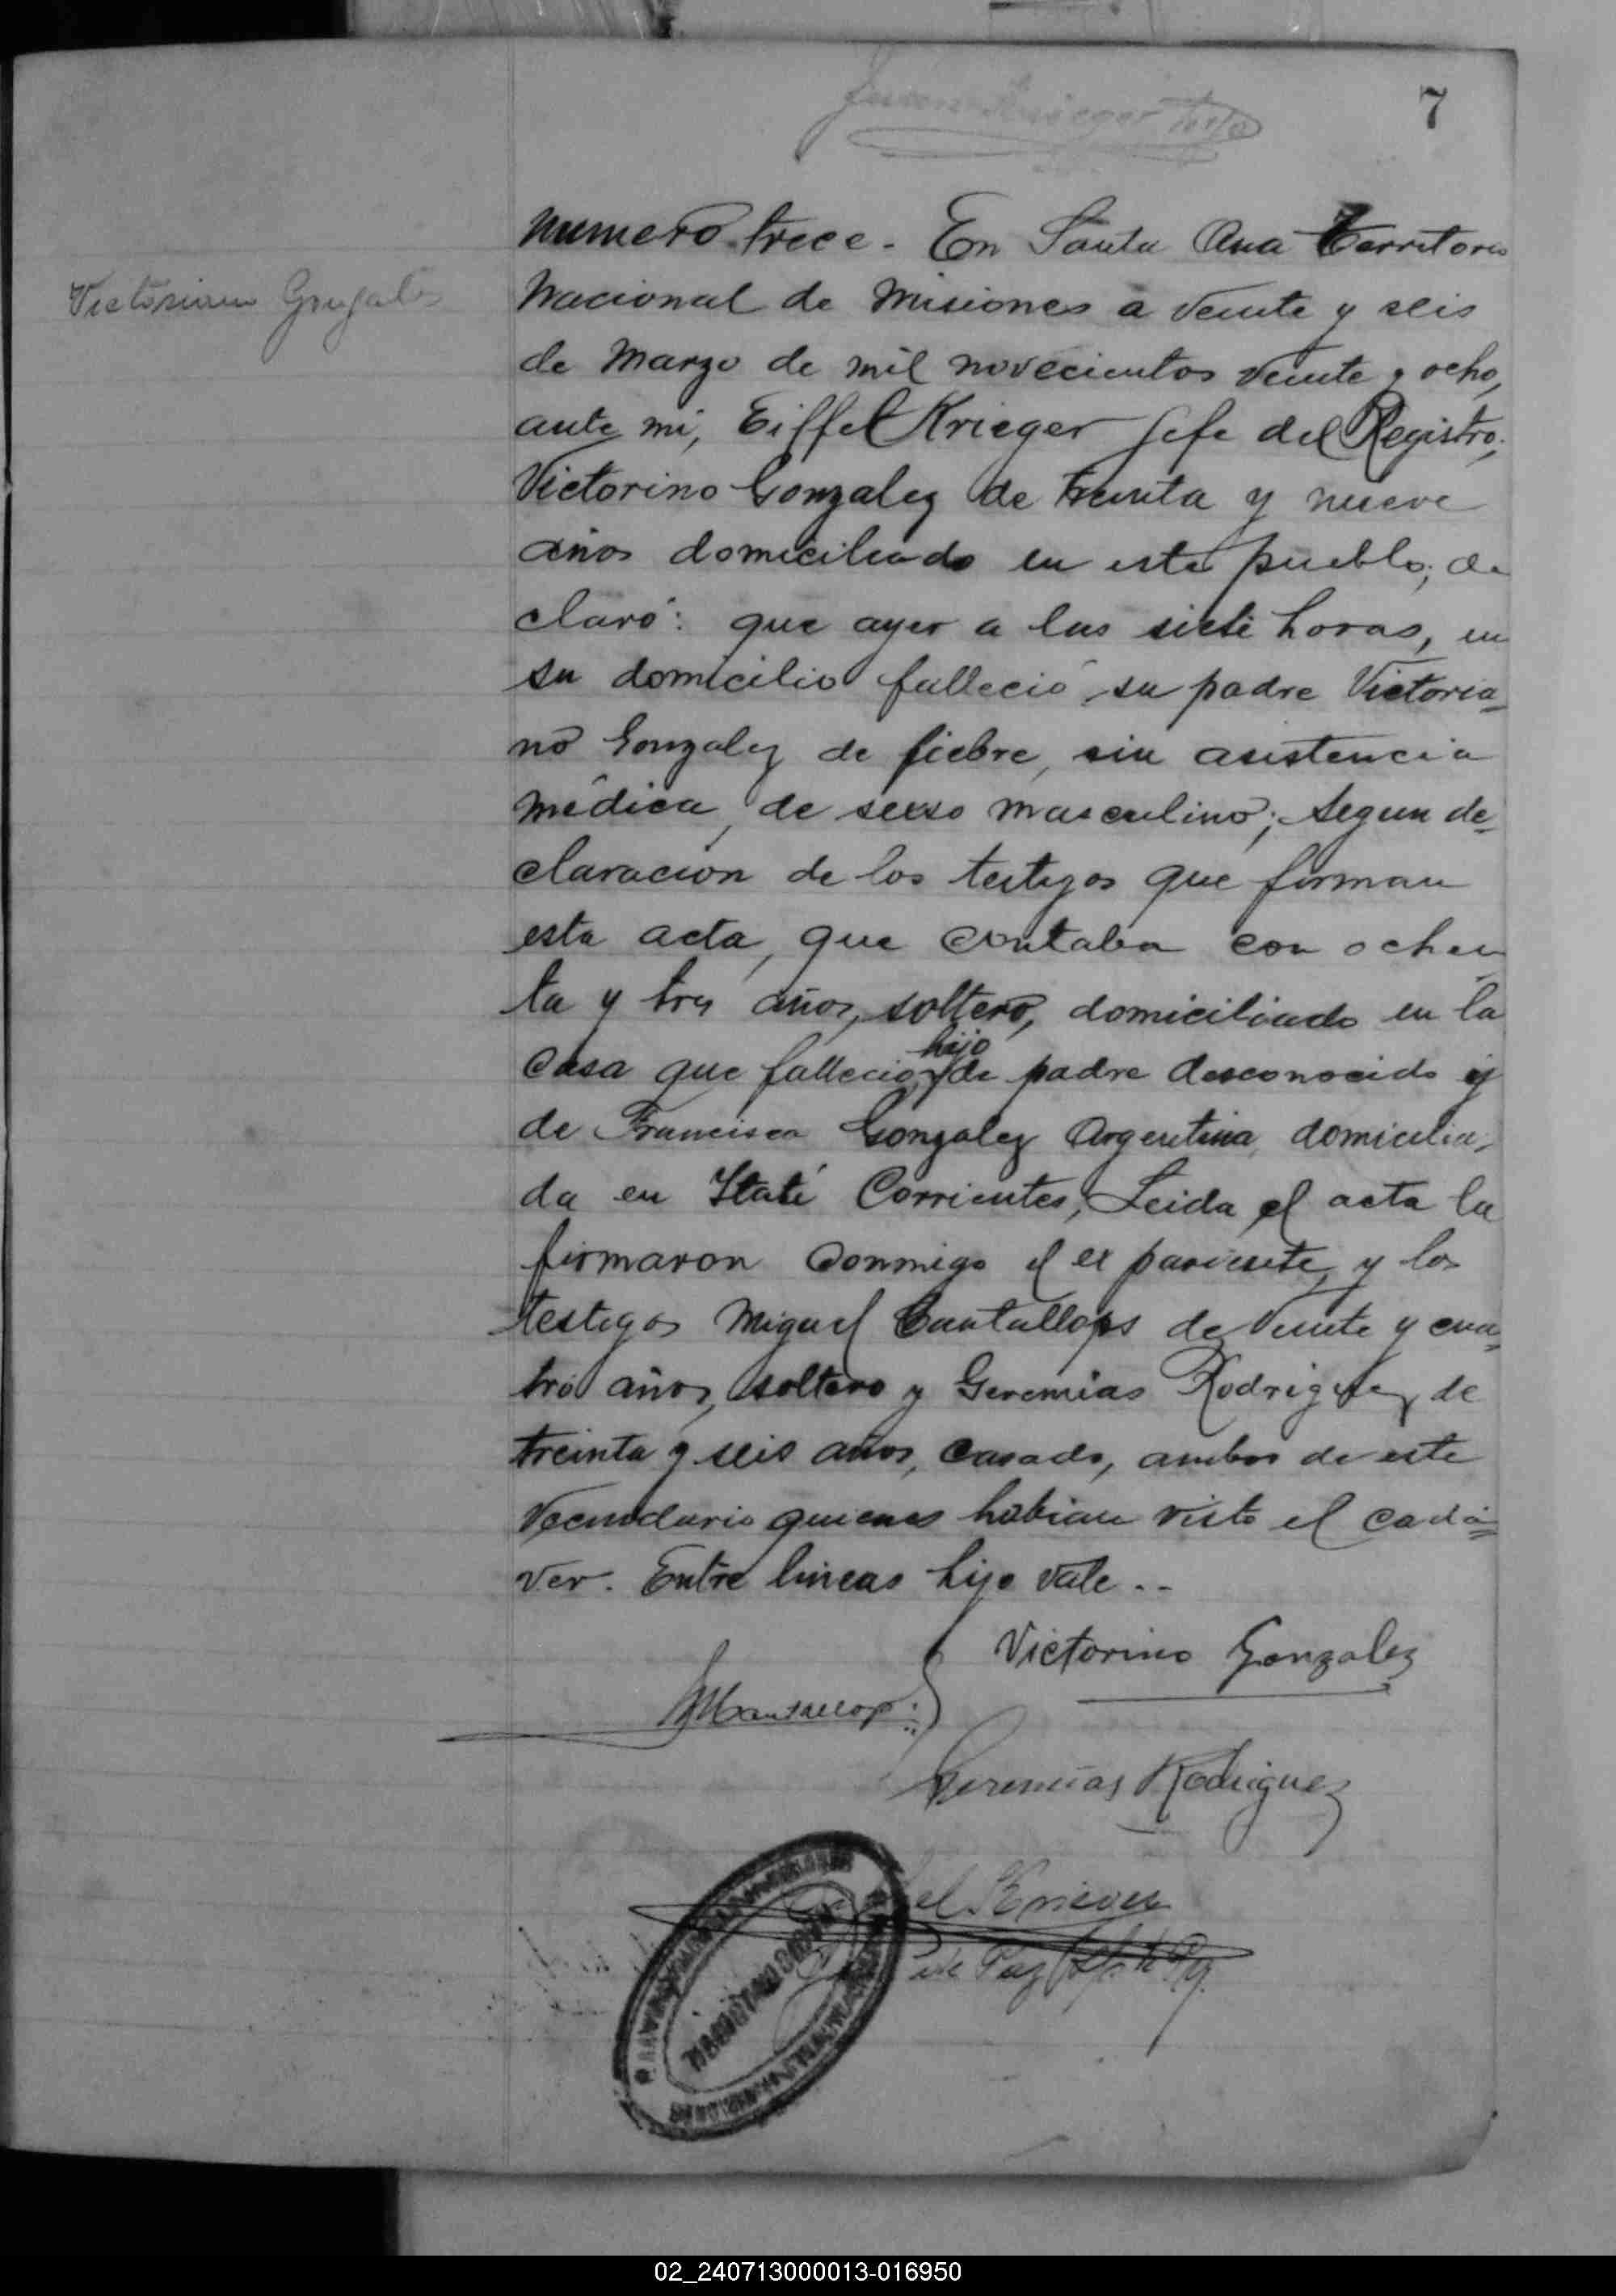 7
Numero trece. En Santa Ana Territorio
Victoriano Gonzalez
Nacional de Misiones a veinte y seis
de Marzo de mil novecientos veinte y ocho,
ante mi, Eiffel Krieger Jefe del Registro,
Victorino Gonzalez de treinta y nueve
años domiciliado en este pueblo, de
claró: que ayer a las siete horas, en
su domicilio falleció su padre Victoria-
no Gonzalez de fiebre, sin asistencia
médica, de sexso masculino; segun de-
claracion de los testigos que firman
esta acta, que contaba con ochen-
ta y tres años, soltero, domiciliado en la
hijo
casa que fallecio, de padre desconocido y
de Francisca Gonzalez Argentina, domicilia-
da en Itatí Corrientes, Leida el acta la
firmaron conmigo el ex pariente, y los
testigos Miguel Cantallops de veinte y cua-
tro años, soltero y Geremias Rodriguez de
treinta y seis años, casado, ambos de este
vecindario quienes habian visto el cadá-
ver. Entre lineas hijo vale..
Victorino Gonzalez
Geremias Rodriguez
Krieger
de Paz
02_240713000013-016950